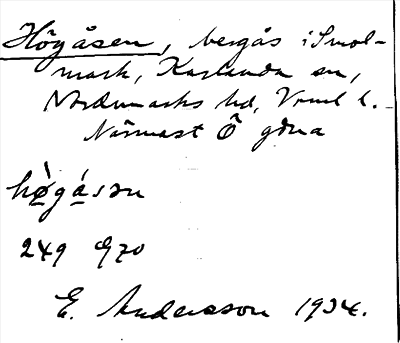 Högåsen, bergås i Smol-
mark, Karlanda sn,
Nordmarks hd, Vrml l.
Närmast Ö gdna
hø̀gásən
249 G70
E. Andersson 1934.